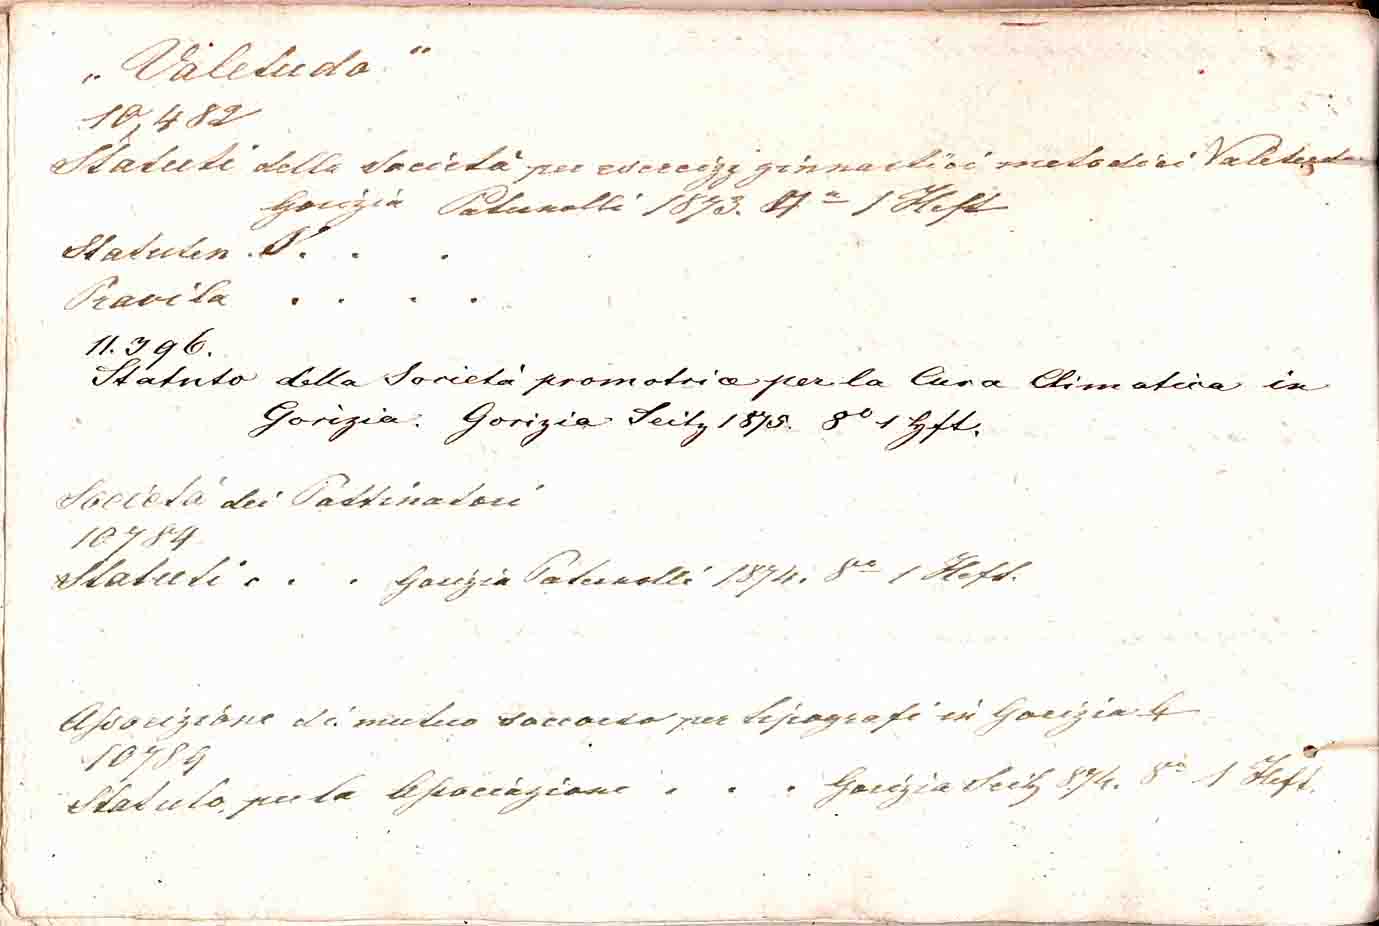 „Valetudo"
10,482
Statuti della Società per esercizj ginnastici metodici Valetudo
Gorizia Paternolli 1873. 1 Heft
Statuten . . . .
Pravila . . . .
11.396.
Statuto della Società promotrice per la Cura Climatica in
Gorizia. Gorizia Seitz 1875. 8o 1 Hft.
Società dei Pattinatori
10784
Statuti . . . Gorizia Paternolli 1874. 8vo 1 Heft.
Associazione di mutuo soccorso per tipografi in Gorizia
10789
Statuto per la Associazione . . . Gorizia Seitz 874. 8vo 1 Heft.